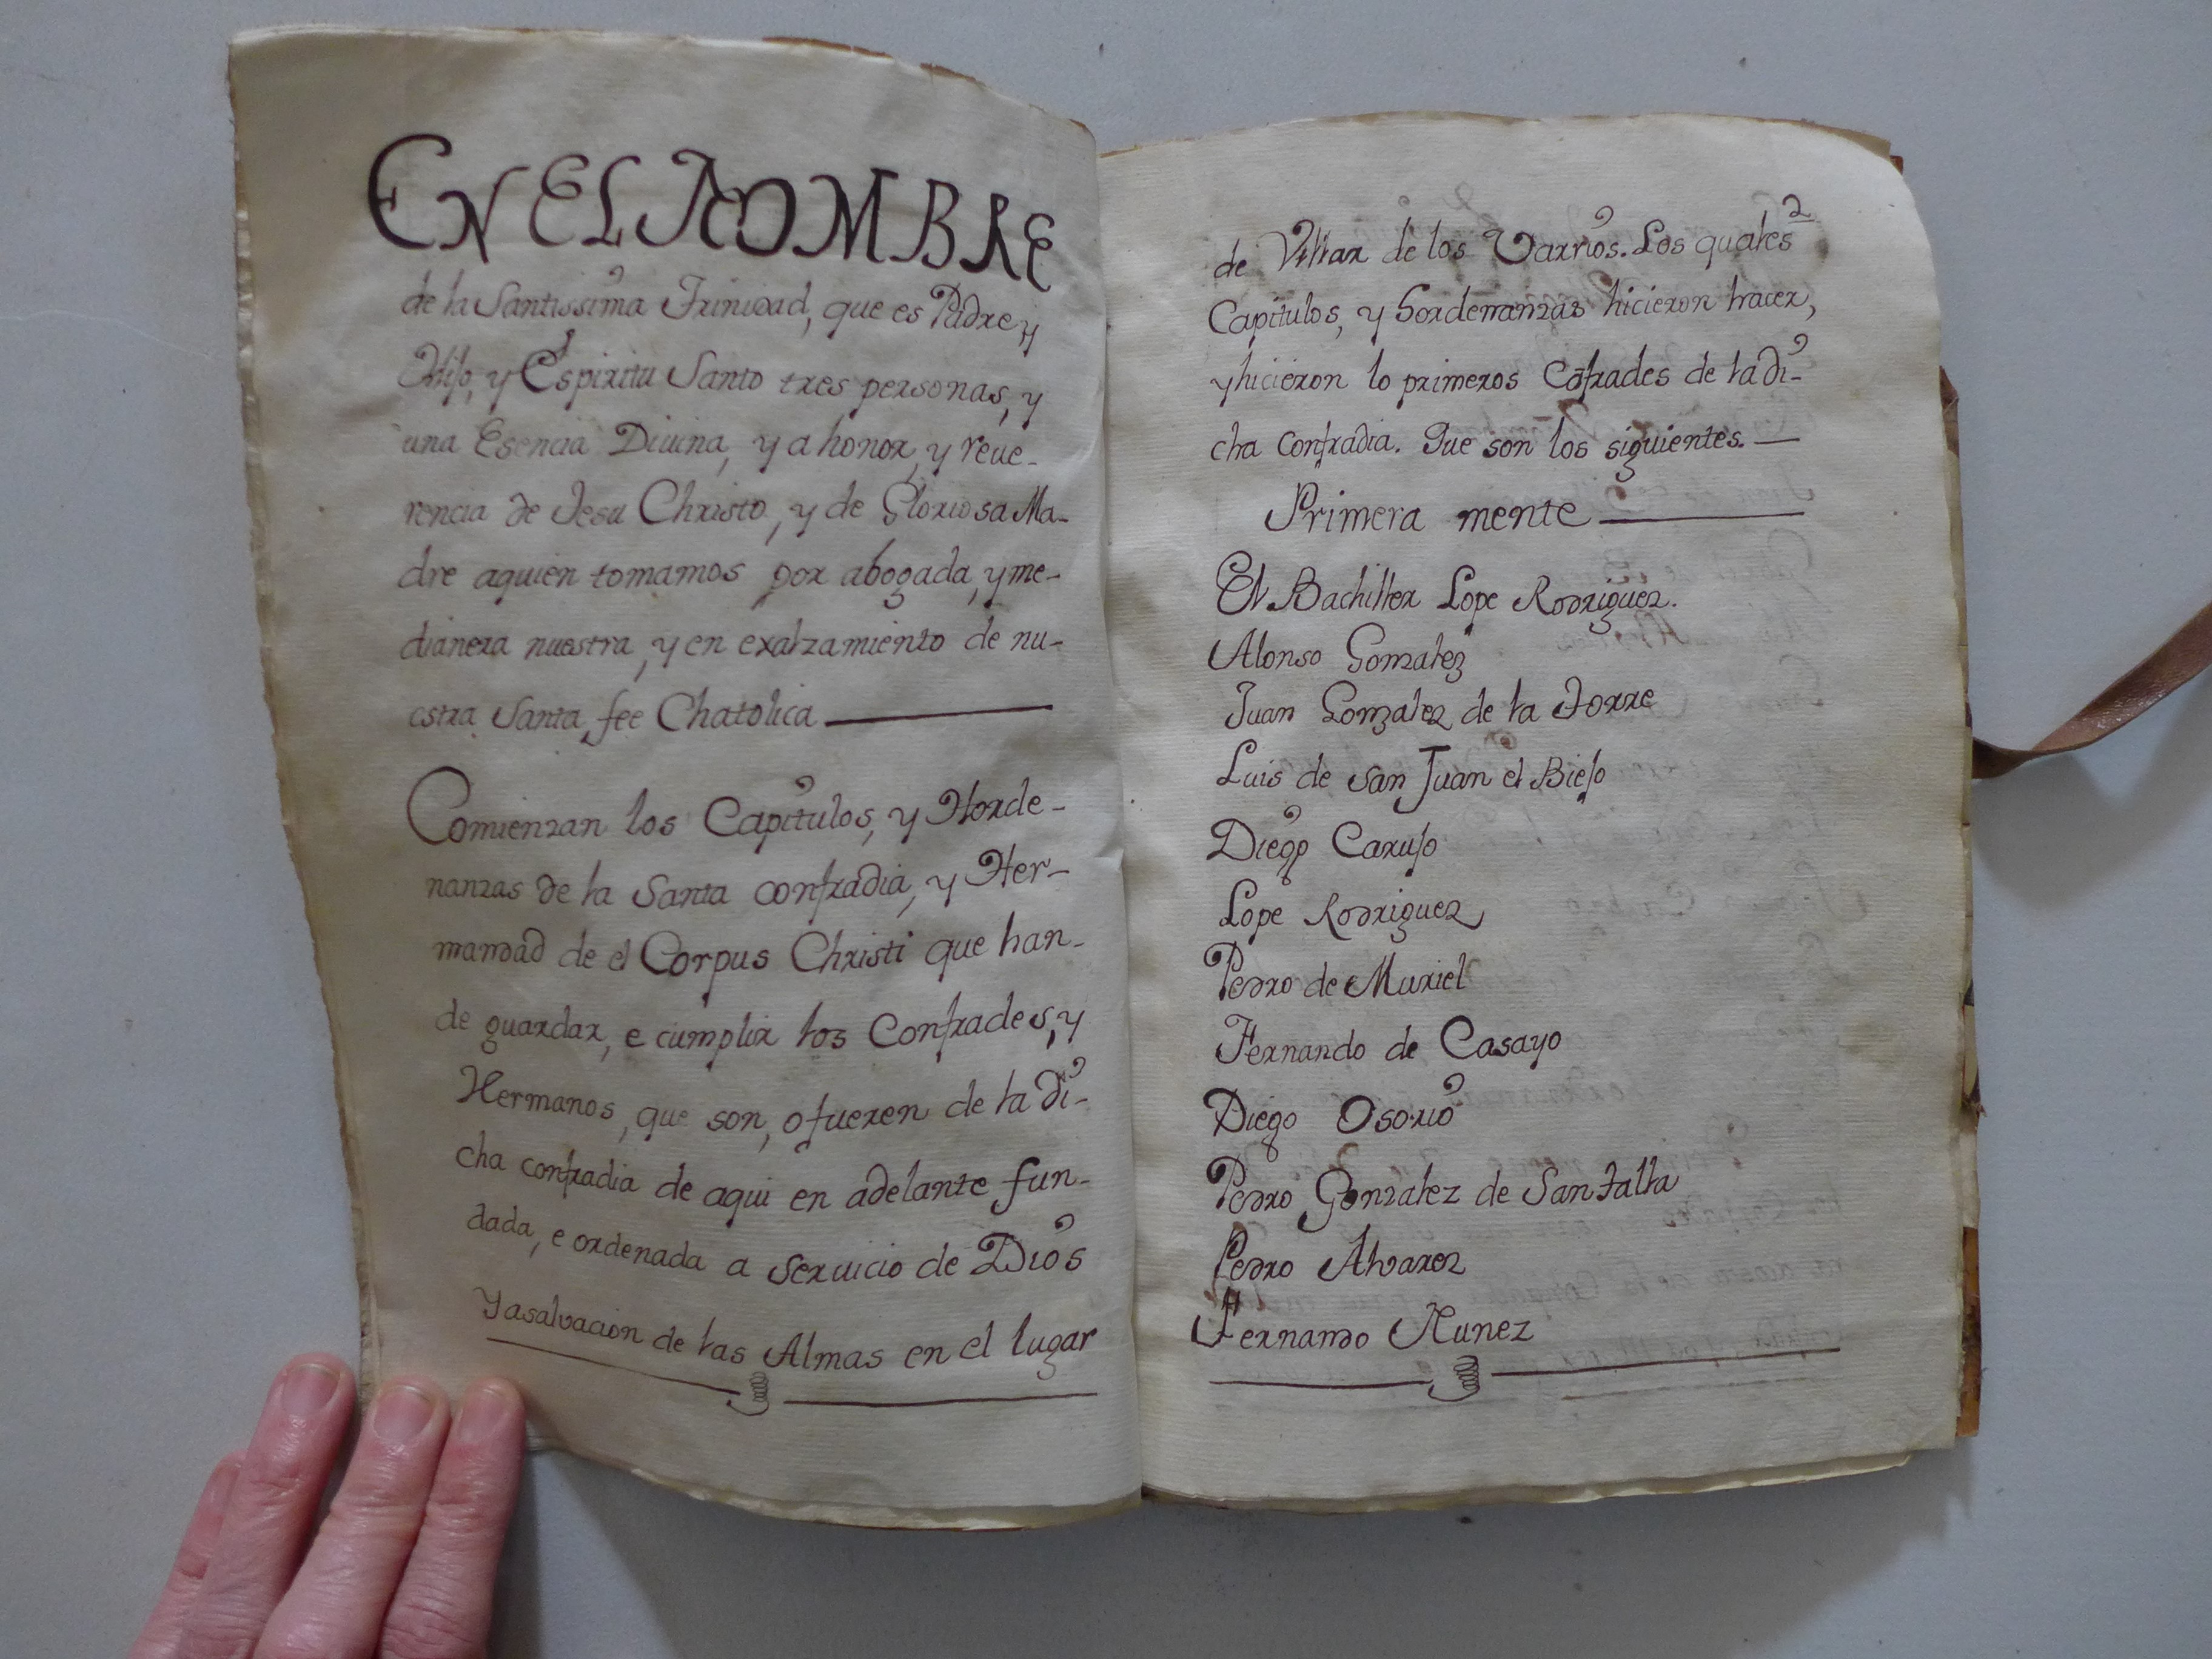 EN EL NOMBRE
de la Santissima Trinidad, que es Padre, y
Hijo, y Espiritu Santo tres personas, y
una Esencia Diuina, y a honor, y reue-
rencia de Jesu Christo, y de Gloriosa Ma-
dre aquien tomamos por abogada, y me-
dianera nuestra, y en exalzamiento de nu-
estra Santa fee Chatolica
Comienzan los Capitulos, y Horde-
nanzas de la Santa confradia, y Her-
mandad de el Corpus Christi que han-
de guardar, e cumplir los Confrades, y
Hermanos, que son, o fueren de la di-
cha confradia de aqui en adelante fun-
dada, e ordenada a seruicio de Dios
Y a salvacion de las Almas en el lugar
2
de Villar de los Varrios. Los quales
Capitulos, y Hordenanzas hicieron hacer,
y hicieron lo primeros Cofrades de la di-
cha Confradia. Que son los siguientes.
Primera mente
El Bachiller Lope Rodriguez.
Alonso Gonzalez
Juan Gonzalez de la Torre
Luis de San Juan el Biejo
Diego Carujo
Lope Rodriguez
Pedro de Muriel
Fernando de Casayo
Diego Osorio
Pedro Gonzalez de Santalla
Pedro Alvarez
Fernando Nunez